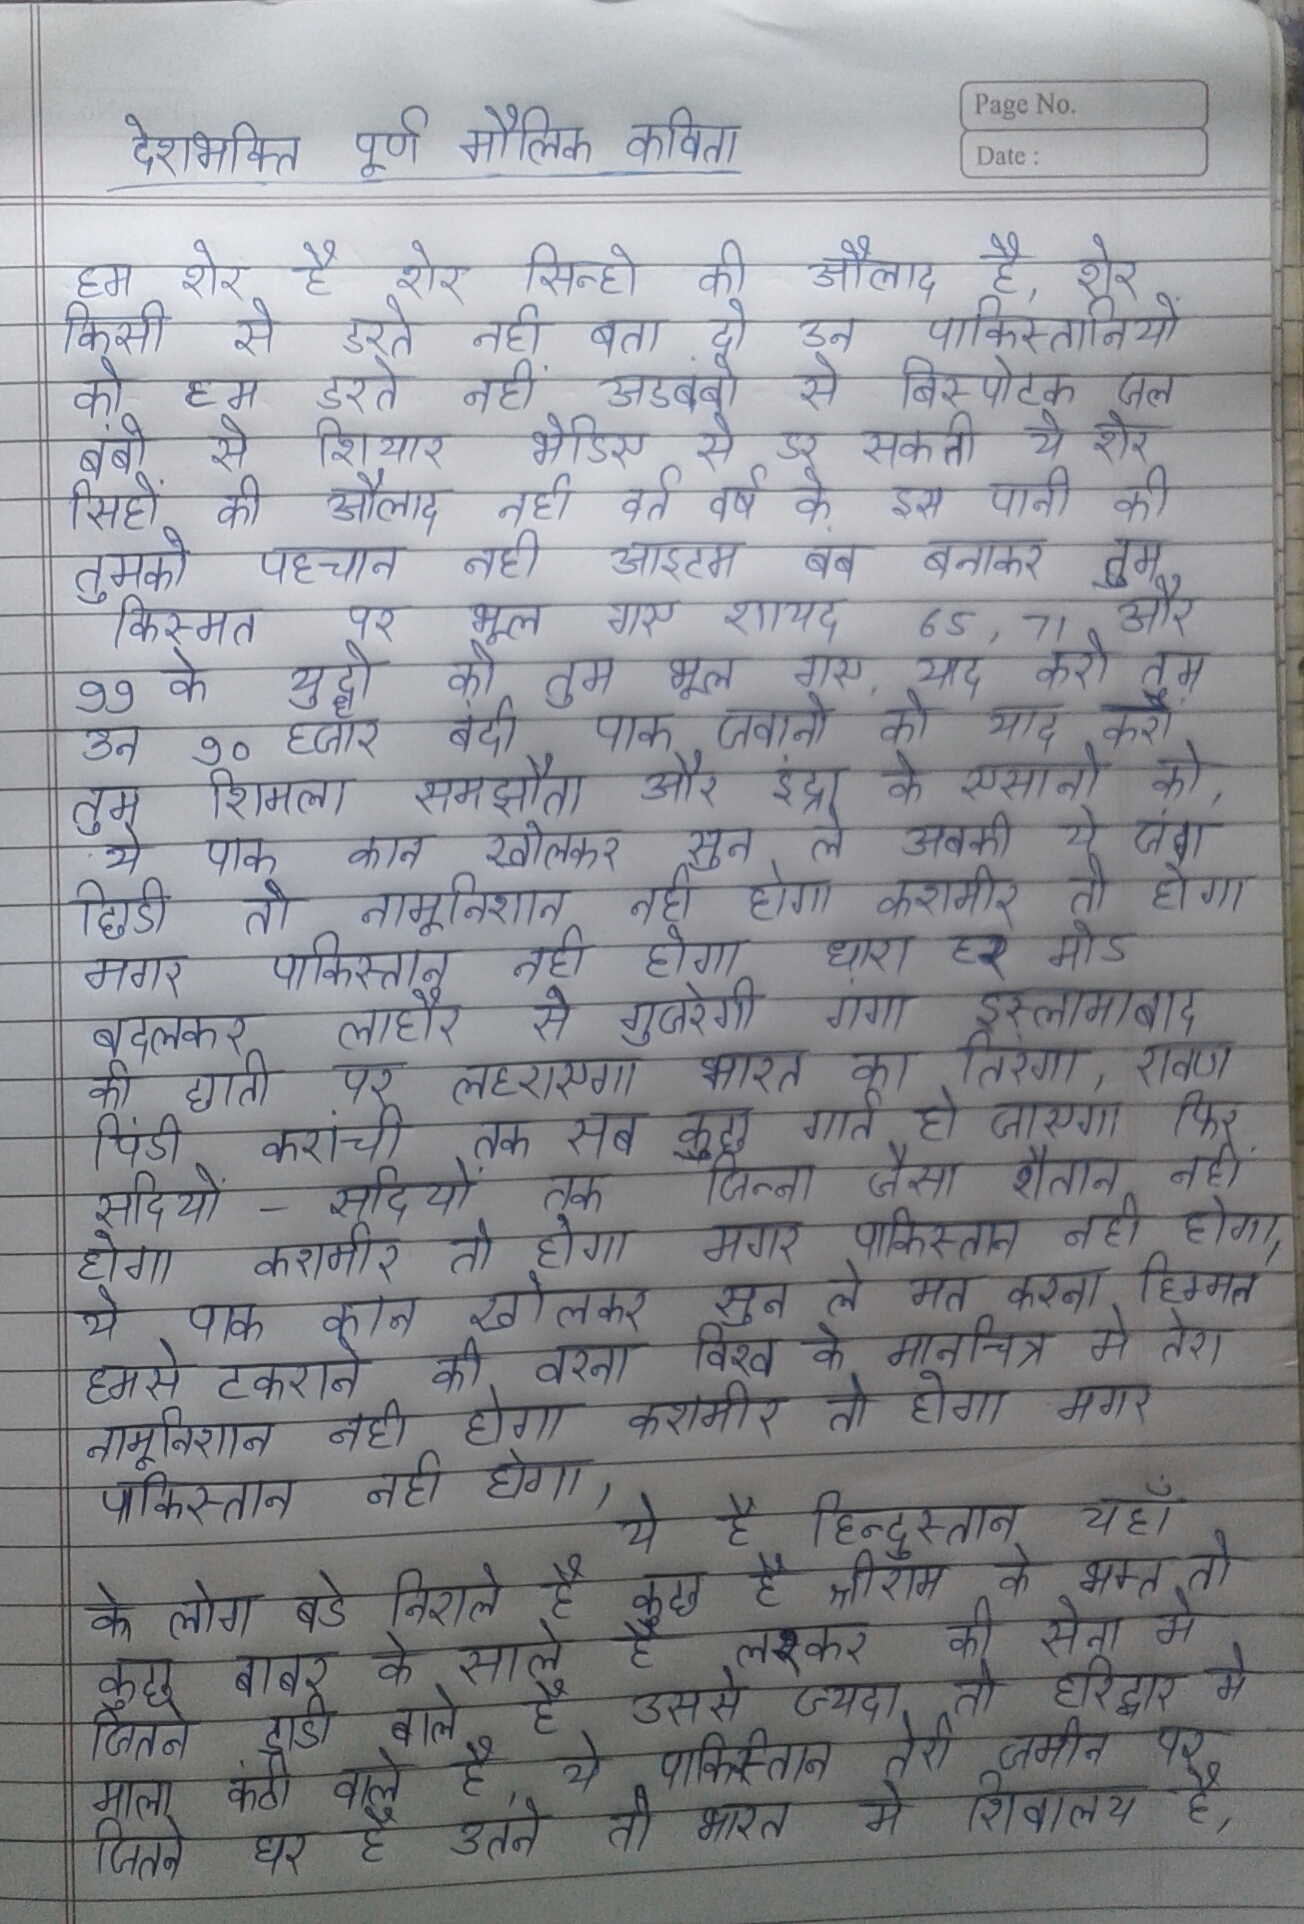 Page No.
Date :
देशभक्ति पूर्ण मौलिक कविता
हम शेर है शेर सिन्हो की औलाद है, शेर
किसी से डरते नही बता दो उन पाकिस्तानियों
को हम डरते नहीं अडबंबो से बिस्पोटक जल
बंबो से शियार भेडिए से डर सकती ये शेर
सिहों की औलाद नही वर्त वर्ष के इस पानी की
तुमको पहचान नही आइटम बंब बनाकर तुम
किस्मत पर भूल गए शायद 65, 71 और
99 के युद्धो को तुम भूल गए, याद करो तुम
उन 90 हजार बंदी पाक जवानो को याद करो
तुम शिमला समझौता और इंद्रा के एसानो को,
ये पाक कान खोलकर सुन ले अबकी ये जंग
छिडी तो नामूनिशान नही होगा कशमीर तो होगा
मगर पाकिस्तान नही होगा धारा हर मोड
बदलकर लाहौर से गुजरेगी गंगा इस्लामाबाद
की छाती पर लहराएगा भारत का तिरंगा, रावण
पिंडी करांची तक सब कुछ गार्त हो जाएगा फिर
सदियों - सदियों तक जिन्ना जैसा शैतान नहीं
होगा कशमीर तो होगा मगर पाकिस्तान नही होगा,
ये पाक कान खोलकर सुन ले मत करना हिम्मत
हमसे टकराने की वरना विश्व के मानचित्र मे तेरा
नामूनिशान नही होगा कशमीर तो होगा मगर
पाकिस्तान नही होगा,
ये है हिन्दुस्तान यहाँ
के लोग बडे निराले है कुछ है श्रीराम के भक्त तो
कुछ बाबर के साले है लश्कर की सेना मे
जितने दाडी बाले है उससे ज्यदा तो हरिद्वार मे
माला कंठी वाले है, ये पाकिस्तान तेरी जमीन पर
जितने घर है उतने तो भारत मे शिवालय है,